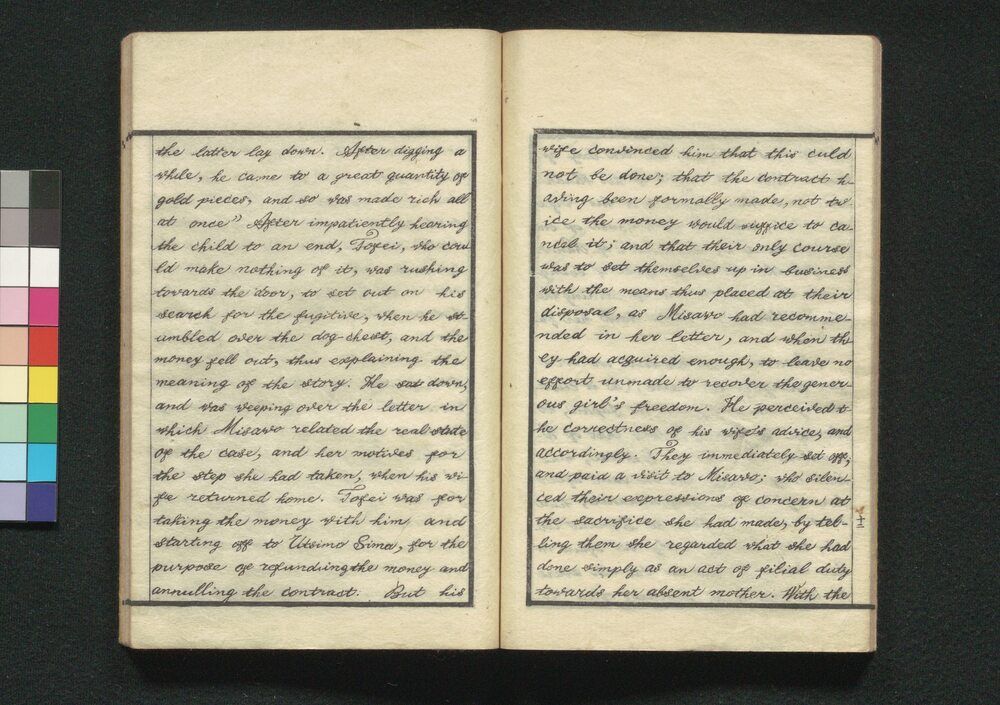 the latter lay down. After digging a
while, he came to a great quantity of
gold pieces, and so was made rich all
at once" After impatiently hearing
the child to an end, Tofei, who cou
ld make nothing of it, was rushing
towards the door, to set out on his
search for the fugitive, when he st-
umbled over the dog-chest, and the
money fell out, thus explaining the
meaning of the story. He sat down,
and was weeping over the letter in
which Misawo related the real state
of the case, and her motives for
the step she had taken, when his wi-
fe returned home. Tofei was for
taking the money with him and
starting off to Utsimo Sima, for the
purpose of refunding the money and
annulling the contract. But his
wife convinced him that this culd
not be done; that the contract h-
aving been formally made, not tw-
ice the money would suffice to ca-
ncel it; and that their only course
was to set themselves up in business
with the means thus placed at their
disposal, as Misawo had recomme-
nded in her letter, and when th-
ey had acquired enough, to leave no
effort unmade to recover the gener-
ous girl's freedom. He perceived t-
he correctness of his wife's advice, and
accordingly. They immediately set off,
and paid a visit to Misawo; who silen-
ced their expressions of concern at
the sacrifice she had made, by tel-
ling them she regarded what she had
done simply as an act of filial duty
towards her absent mother. With the
十三